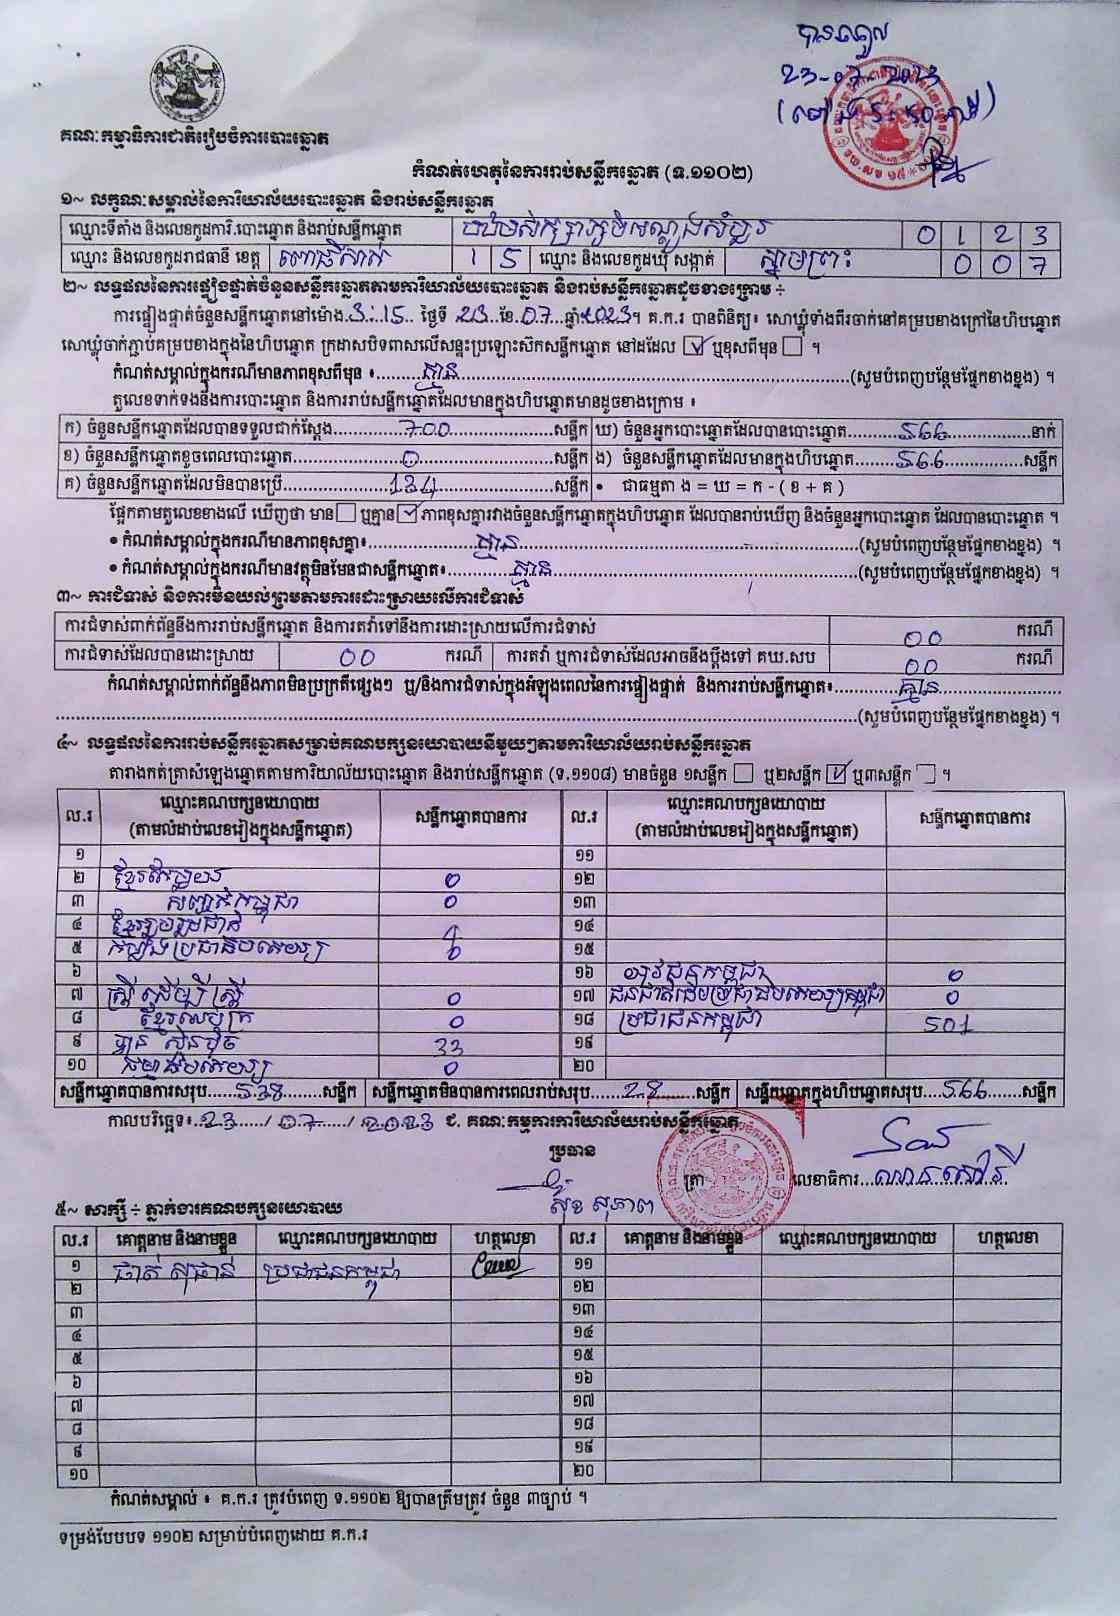 បានទទួល
23-07-2023
គណៈកម្មាធិការជាតិរៀបចំការបោះឆ្នោត
កំណត់ហេតុនៃការរាប់សន្លឹកឆ្នោត (ទ.១១០២)
១~ លក្ខណៈសម្គាល់នៃការិយាល័យបោះឆ្នោត និងរាប់សន្លឹកឆ្នោត
ឈ្មោះទីតាំង និងលេខកូដការិ.បោះឆ្នោត និងរាប់សន្លឹកឆ្នោត 0 1 2 3
ឈ្មោះ និងលេខកូដរាជធានី ខេត្ត ពោធិ៍សាត់ 1 5 ឈ្មោះ និងលេខកូដឃុំ សង្កាត់ ស្នាមព្រះ 0 0 7
២~ លទ្ធផលនៃការផ្ទៀងផ្ទាត់ចំនួនសន្លឹកឆ្នោតតាមការិយាល័យបោះឆ្នោត និងរាប់សន្លឹកឆ្នោតដូចខាងក្រោម ៖
ការផ្ទៀងផ្ទាត់ចំនួនសន្លឹកឆ្នោតនៅម៉ោង 3:15 ថ្ងៃទី 23 ខែ 07 ឆ្នាំ 2023។ គ.ក.រ បានពិនិត្យ៖ សោឃ្លុំទាំងពីរចាក់នៅគម្របខាងក្រៅនៃហិបឆ្នោត
សោឃ្លុំចាក់ភ្ជាប់គម្របខាងក្នុងនៃហិបឆ្នោត ក្រដាសបិទពាសលើសន្ទះប្រឡោះស៊កសន្លឹកឆ្នោត នៅដដែល ☑ ឬខុសពីមុន ☐ ។
កំណត់សម្គាល់ក្នុងករណីមានភាពខុសពីមុន ៖ គ្មាន (សូមបំពេញបន្ថែមផ្នែកខាងខ្នង) ។
តួលេខទាក់ទងនឹងការបោះឆ្នោត និងការរាប់សន្លឹកឆ្នោតដែលមានក្នុងហិបឆ្នោតមានដូចខាងក្រោម ៖
ក) ចំនួនសន្លឹកឆ្នោតដែលបានទទួលជាក់ស្តែង 700 សន្លឹក ឃ) ចំនួនអ្នកបោះឆ្នោតដែលបានបោះឆ្នោត 566 នាក់
ខ) ចំនួនសន្លឹកឆ្នោតខូចពេលបោះឆ្នោត 0 សន្លឹក ង) ចំនួនសន្លឹកឆ្នោតដែលមានក្នុងហិបឆ្នោត 566 សន្លឹក
គ) ចំនួនសន្លឹកឆ្នោតដែលមិនបានប្រើ 134 សន្លឹក • ជាធម្មតា ង = ឃ = ក - ( ខ + គ )
ផ្អែកតាមតួលេខខាងលើ ឃើញថា មាន ☐ ឬគ្មាន ☑ ភាពខុសគ្នារវាងចំនួនសន្លឹកឆ្នោតក្នុងហិបឆ្នោត ដែលបានរាប់ឃើញ និងចំនួនអ្នកបោះឆ្នោត ដែលបានបោះឆ្នោត ។
• កំណត់សម្គាល់ក្នុងករណីមានភាពខុសគ្នា៖ គ្មាន (សូមបំពេញបន្ថែមផ្នែកខាងខ្នង) ។
• កំណត់សម្គាល់ក្នុងករណីមានវត្ថុមិនមែនជាសន្លឹកឆ្នោត៖ គ្មាន (សូមបំពេញបន្ថែមផ្នែកខាងខ្នង) ។
៣~ ការជំទាស់ និងការមិនយល់ព្រមតាមការដោះស្រាយលើការជំទាស់
ការជំទាស់ពាក់ព័ន្ធនឹងការរាប់សន្លឹកឆ្នោត និងការតវ៉ាទៅនឹងការដោះស្រាយលើការជំទាស់ 00 ករណី
ការជំទាស់ដែលបានដោះស្រាយ 00 ករណី ការតវ៉ា ឬការជំទាស់ដែលអាចនឹងប្តឹងទៅ គឃ.សប 00 ករណី
កំណត់សម្គាល់ពាក់ព័ន្ធនឹងភាពមិនប្រក្រតីផ្សេងៗ ឬ/និងការជំទាស់ក្នុងអំឡុងពេលនៃការផ្ទៀងផ្ទាត់ និងការរាប់សន្លឹកឆ្នោត៖ គ្មាន
(សូមបំពេញបន្ថែមផ្នែកខាងខ្នង) ។
៤~ លទ្ធផលនៃការរាប់សន្លឹកឆ្នោតសម្រាប់គណបក្សនយោបាយនីមួយៗតាមការិយាល័យរាប់សន្លឹកឆ្នោត
តារាងកត់ត្រាសំឡេងឆ្នោតតាមការិយាល័យបោះឆ្នោត និងរាប់សន្លឹកឆ្នោត (ទ.១១០៨) មានចំនួន ១សន្លឹក ☐ ឬ២សន្លឹក ☑ ឬ៣សន្លឹក ☐ ។
ល.រ ឈ្មោះគណបក្សនយោបាយ (តាមលំដាប់លេខរៀងក្នុងសន្លឹកឆ្នោត) សន្លឹកឆ្នោតបានការ ល.រ ឈ្មោះគណបក្សនយោបាយ (តាមលំដាប់លេខរៀងក្នុងសន្លឹកឆ្នោត) សន្លឹកឆ្នោតបានការ
១ ១១
២ 0 ១២
៣ សញ្ជាតិកម្ពុជា 0 ១៣
៤ ខ្មែររួបរួមជាតិ ១៤
៥ កម្លាំងប្រជាធិបតេយ្យ ១៥
៦ ១៦ យុវជនកម្ពុជា 0
៧ ស្ត្រី ដើម្បី ស្ត្រី 0 ១៧ ជនជាតិដើមប្រជាធិបតេយ្យកម្ពុជា 0
៨ 0 ១៨ ប្រជាជនកម្ពុជា 501
៩ ហ៊្វុនស៊ិនប៉ិច 33 ១៩
១០ ធម្មាធិបតេយ្យ 0 ២០
សន្លឹកឆ្នោតបានការសរុប 538 សន្លឹក សន្លឹកឆ្នោតមិនបានការពេលរាប់សរុប 28 សន្លឹក សន្លឹកឆ្នោតក្នុងហិបឆ្នោតសរុប 566 សន្លឹក
កាលបរិច្ឆេទ៖ 23 / 07 / 2023 ជ. គណៈកម្មការការិយាល័យរាប់សន្លឹកឆ្នោត
ប្រធាន
ត្រា លេខាធិការ
ស៊ុខ សុភាព
៥~ សាក្សី ÷ ភ្នាក់ងារគណបក្សនយោបាយ
ល.រ គោត្តនាម និងនាមខ្លួន ឈ្មោះគណបក្សនយោបាយ ហត្ថលេខា ល.រ គោត្តនាម និងនាមខ្លួន ឈ្មោះគណបក្សនយោបាយ ហត្ថលេខា
១ ផាត់ សុផាន់ ប្រជាជនកម្ពុជា ១១
២ ១២
៣ ១៣
៤ ១៤
៥ ១៥
៦ ១៦
៧ ១៧
៨ ១៨
៩ ១៩
១០ ២០
កំណត់សម្គាល់ ៖ គ.ក.រ ត្រូវបំពេញ ទ.១១០២ ឱ្យបានត្រឹមត្រូវ ចំនួន ៣ច្បាប់ ។
ទម្រង់បែបបទ ១១០២ សម្រាប់បំពេញដោយ គ.ក.រ